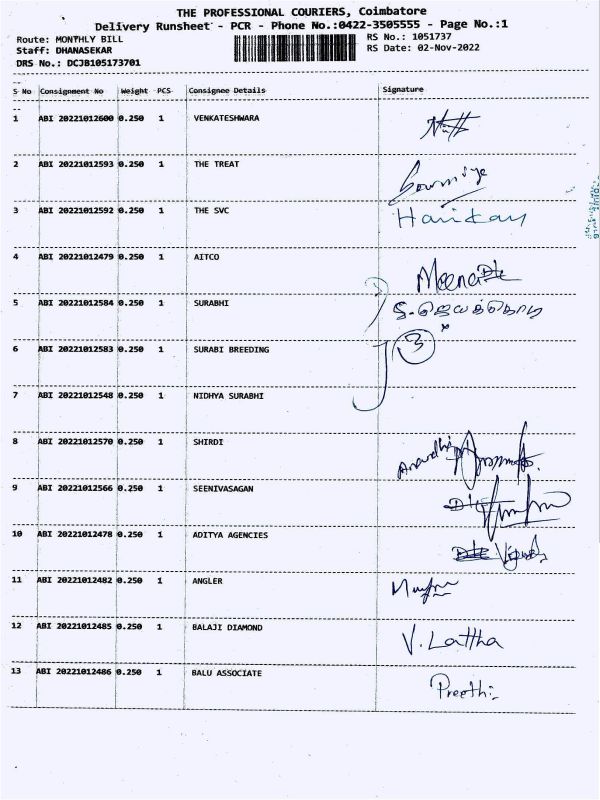 THE PROFESSIONAL COURIERS, Coimbatore
Delivery Runsheet - PCR - Phone No.:0422-3505555 - Page No.:1
Route: MONTHLY BILL
Staff: DHANASEKAR
DRS No.: DCJB105173701
RS No.: 1051737
RS Date: 02-Nov-2022
S No Consignment No Weight PCS Consignee Details Signature
1 ABI 20221012600 0.250 1 VENKATESHWARA
2 ABI 20221012593 0.250 1 THE TREAT Sowmiya
3 ABI 20221012592 0.250 1 THE SVC Harikar
4 ABI 20221012479 0.250 1 AITCO Meena
5 ABI 20221012584 0.250 1 SURABHI
6 ABI 20221012583 0.250 1 SURABI BREEDING 3
7 ABI 20221012548 0.250 1 NIDHYA SURABHI
8 ABI 20221012570 0.250 1 SHIRDI
9 ABI 20221012566 0.250 1 SEENIVASAGAN
10 ABI 20221012478 0.250 1 ADITYA AGENCIES
11 ABI 20221012482 0.250 1 ANGLER
12 ABI 20221012485 0.250 1 BALAJI DIAMOND V. Lattha
13 ABI 20221012486 0.250 1 BALU ASSOCIATE Preethi